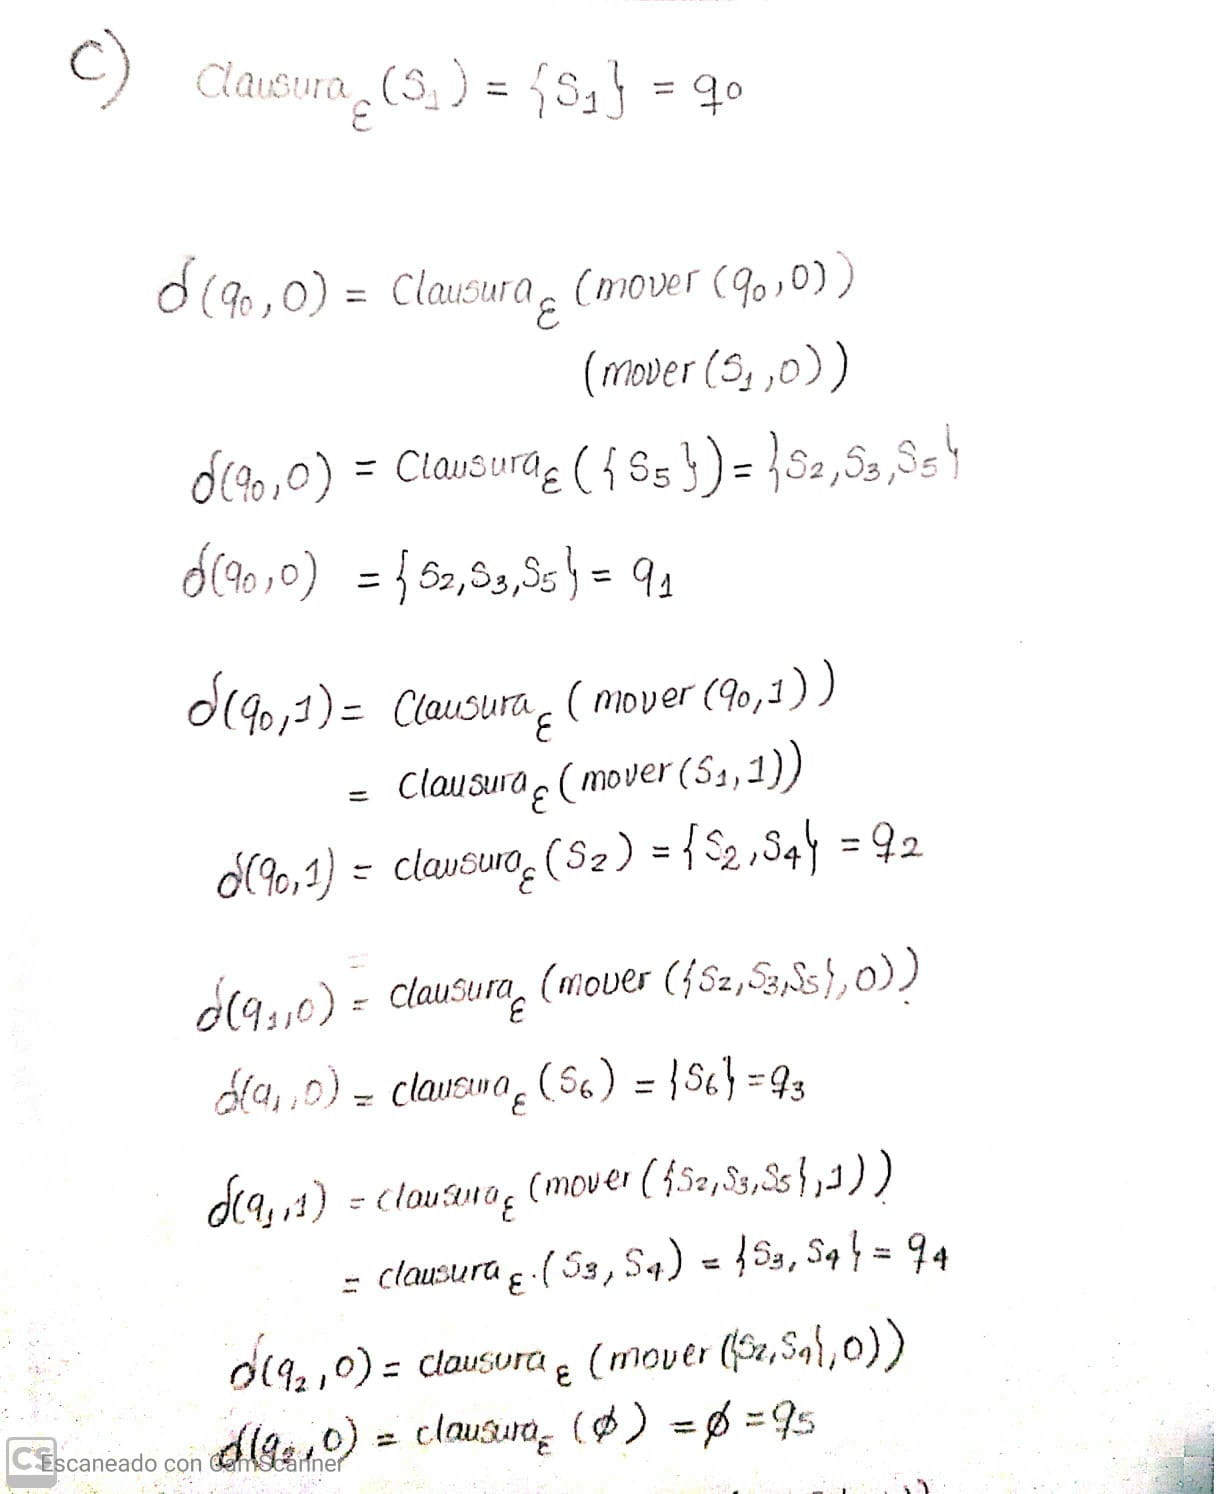 C) Clausura_ε (S₁) = {S₁} = q₀
δ(q₀,0) = Clausura_ε (mover (q₀,0))
(mover (S₁,0))
δ(q₀,0) = Clausura_ε ({S₅}) = {S₂,S₃,S₅}
δ(q₀,0) = {S₂,S₃,S₅} = q₁
δ(q₀,1) = Clausura_ε (mover (q₀,1))
= Clausura_ε (mover (S₁,1))
δ(q₀,1) = clausura_ε (S₂) = {S₂,S₄} = q₂
δ(q₁,0) = clausura_ε (mover ({S₂,S₃,S₅},0))
δ(q₁,0) = clausura_ε (S₆) = {S₆} = q₃
δ(q₁,1) = clausura_ε (mover ({S₂,S₃,S₅},1))
= clausura_ε (S₃,S₄) = {S₃,S₄} = q₄
δ(q₂,0) = clausura_ε (mover ({S₂,S₄},0))
δ(q₂,0) = clausura_ε (ø) = ø = q₅
CS Escaneado con CamScanner